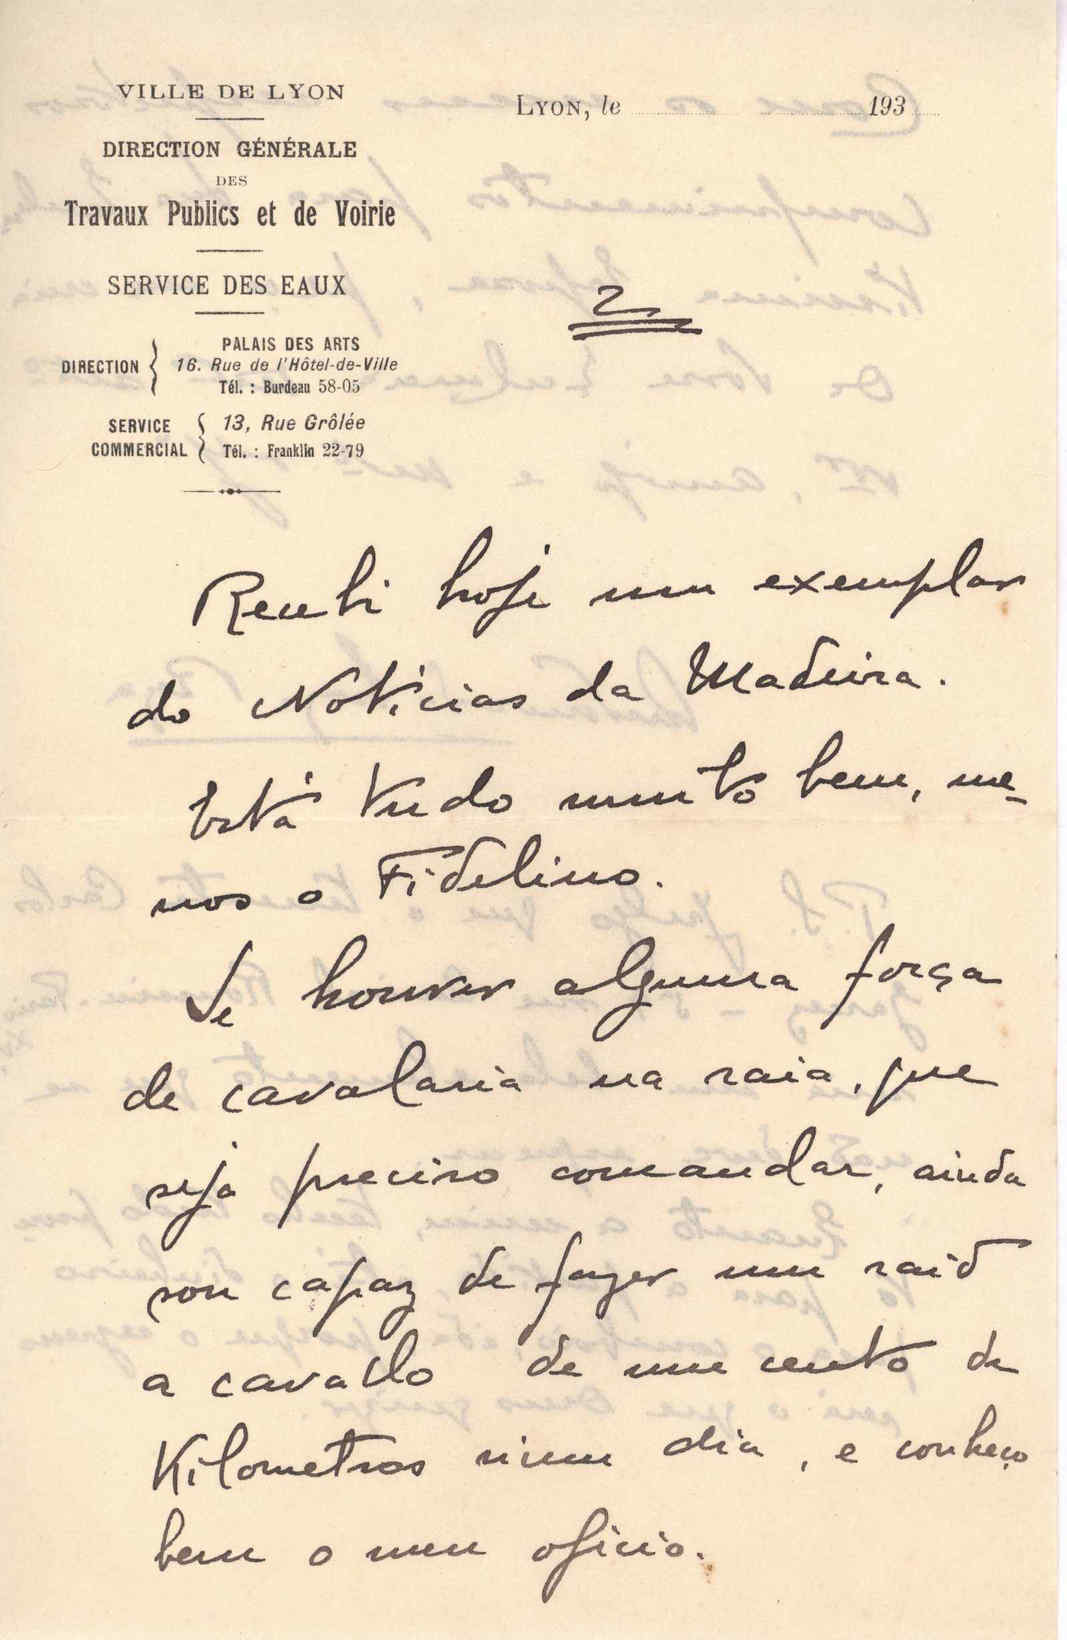 VILLE DE LYON
DIRECTION GÉNÉRALE
DES
Travaux Publics et de Voirie
SERVICE DES EAUX
DIRECTION { PALAIS DES ARTS
16. Rue de l'Hôtel-de-Ville
Tél. : Burdeau 58-05
SERVICE COMMERCIAL { 13, Rue Grôlée
Tél. : Franklin 22-79
LYON, le 193
2
Recebi hoje um exemplar
do Noticias da Madeira.
Está tudo muito bem, me-
nos o Fidelino.
Se houver alguma força
de cavalaria na raia, que
seja preciso comandar, ainda
sou capaz de fazer um raid
a cavallo de um cento de
Kilometros num dia, e conheço
bem o meu oficio.